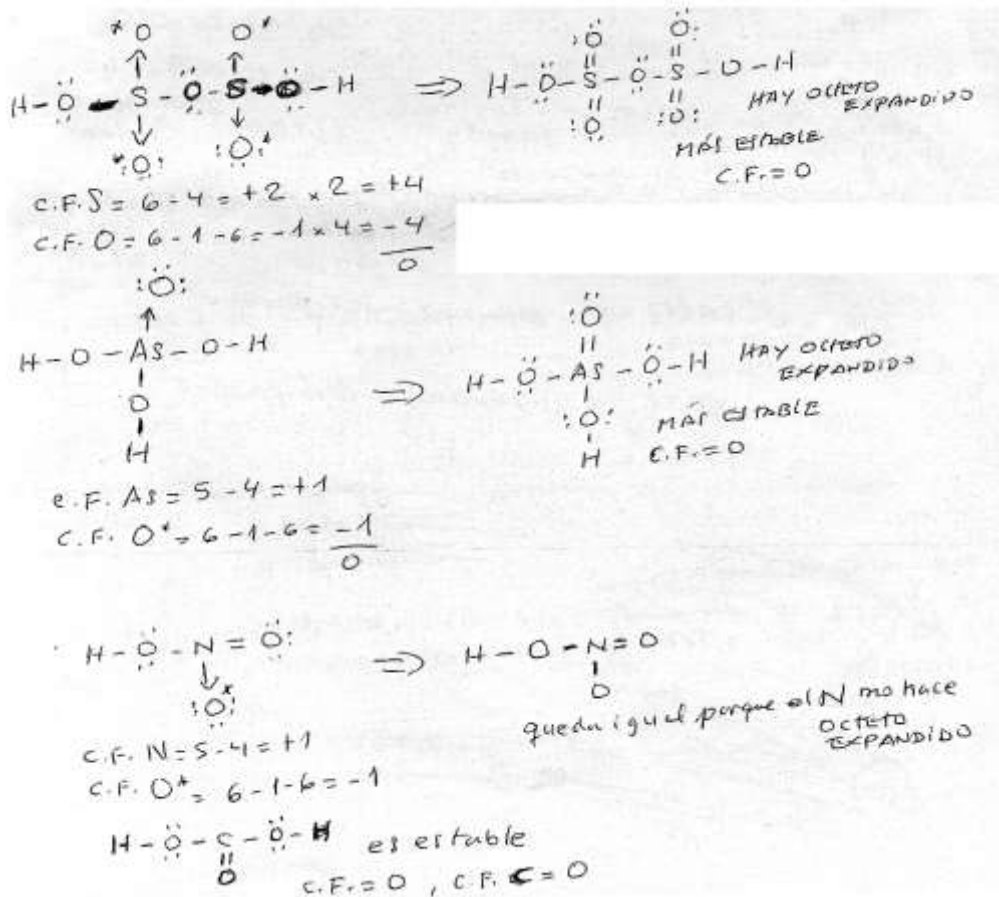 *O O*
H - O - S - O - S - O - H
*O: :O:*
⇒ :O: O:
H - O - S - O - S - O - H
:O: :O:
HAY OCTETO
EXPANDIDO
MÁS ESTABLE
C.F. = 0
C.F. S = 6 - 4 = +2 x 2 = +4
C.F. O = 6 - 1 - 6 = -1 x 4 = -4
0
:O:
H - O - AS - O - H
O
H
⇒ :O:
H - O - AS - O - H
:O:
H
HAY OCTETO
EXPANDIDO
MÁS ESTABLE
C.F. = 0
C.F. AS = 5 - 4 = +1
C.F. O* = 6 - 1 - 6 = -1
0
H - O - N = O:
:O:*
⇒ H - O - N = O
O
queda igual porque el N no hace
OCTETO
EXPANDIDO
C.F. N = 5 - 4 = +1
C.F. O* = 6 - 1 - 6 = -1
H - O - C - O - H
O
es estable
C.F. = 0 , C.F. C = 0